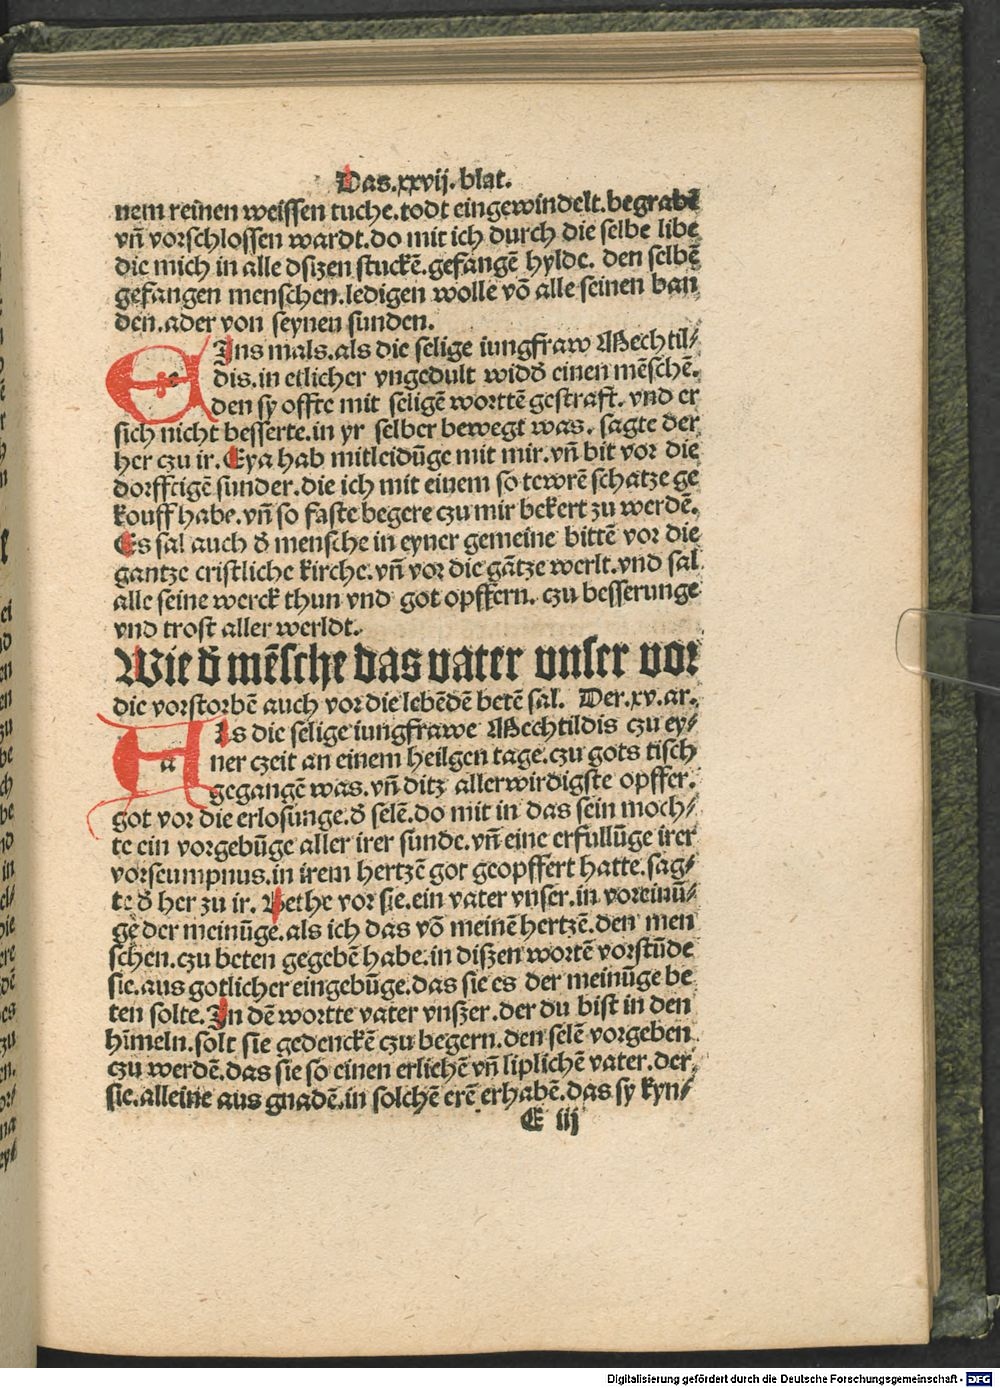 Das.xxvij.blat.
nem reinen weissen tuche.todt eingewindelt.begrabē
vn̄ vorschlossen wardt.do mit ich durch die selbe libe
die mich in alle dsizen stuckē.gefangē hylde. den selbē
gefangen menschen.ledigen wolle vō alle seinen ban
den.ader von seynen sunden.
EIns mals.als die selige iungfraw Mechtil⸗
dis.in etlicher yngedult wid᷒ einen mēschē.
den sy offte mit seligē worttē gestraft. vnd er
sich nicht besserte.in yr selber bewegt was. sagte der
her czu ir. Eya hab mitleidūge mit mir.vn̄ bit vor die
dorfftigē sunder.die ich mit einem so tewrē schatze ge
kouff habe.vn̄ so faste begere czu mir bekert zu werdē.
Es sal auch d᷒ mensche in eyner gemeine bittē vor die
gantze cristliche kirche.vn̄ vor die gātze werlt.vnd sal
alle seine werck thun vnd got opffern. czu besserunge
vnd trost aller werldt.
Wie d᷒ mēsche das vater vnser vor
die vorstorbē auch vor die lebēdē betē sal. Der.xv.ar.
Als die selige iungfrawe Mechtildis czu ey⸗
ner czeit an einem heilgen tage.czu gots tisch
gegangē was.vn̄ ditz allerwirdigste opffer.
got vor die erlosunge.d᷒ selē.do mit in das sein moch⸗
te ein vorgebūge aller irer sunde.vn̄ eine erfullūge irer
vorseumpnus.in irem hertzē got geopffert hatte.sag⸗
te d᷒ her zu ir. Bethe vor sie.ein vater vnser.in voreinū⸗
gē der meinūge.als ich das vō meinē hertzē.den men
schen.czu beten gegebē habe.in diszen wortē vorstūde
sie.aus gotlicher eingebūge.das sie es der meinūge be
ten solte. In dē wortte vater vnszer.der du bist in den
hīmeln.solt sie gedenckē czu begern.den selē vorgeben
czu werdē.das sie so einen erlichē vn̄ liplichē vater.der
sie.alleine aus gnadē.in solchē erē erhabē.das sy kyn⸗
E iij
Digitalisierung gefördert durch die Deutsche Forschungsgemeinschaft - DFG